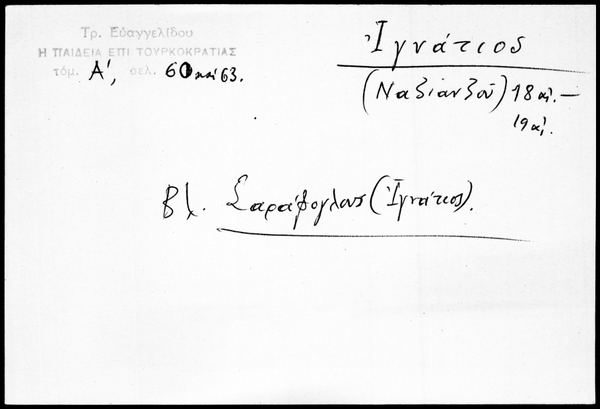 Τρ. Εὐαγγελίδου
Η ΠΑΙΔΕΙΑ ΕΠΙ ΤΟΥΡΚΟΚΡΑΤΙΑΣ
τόμ. Α', σελ. 60 και 63.
Ἰγνάτιος
(Ναζιανζοῦ) 18 αἰ. –
19 αἰ.
Βλ. Σαράφογλους (Ἰγνάτιος).